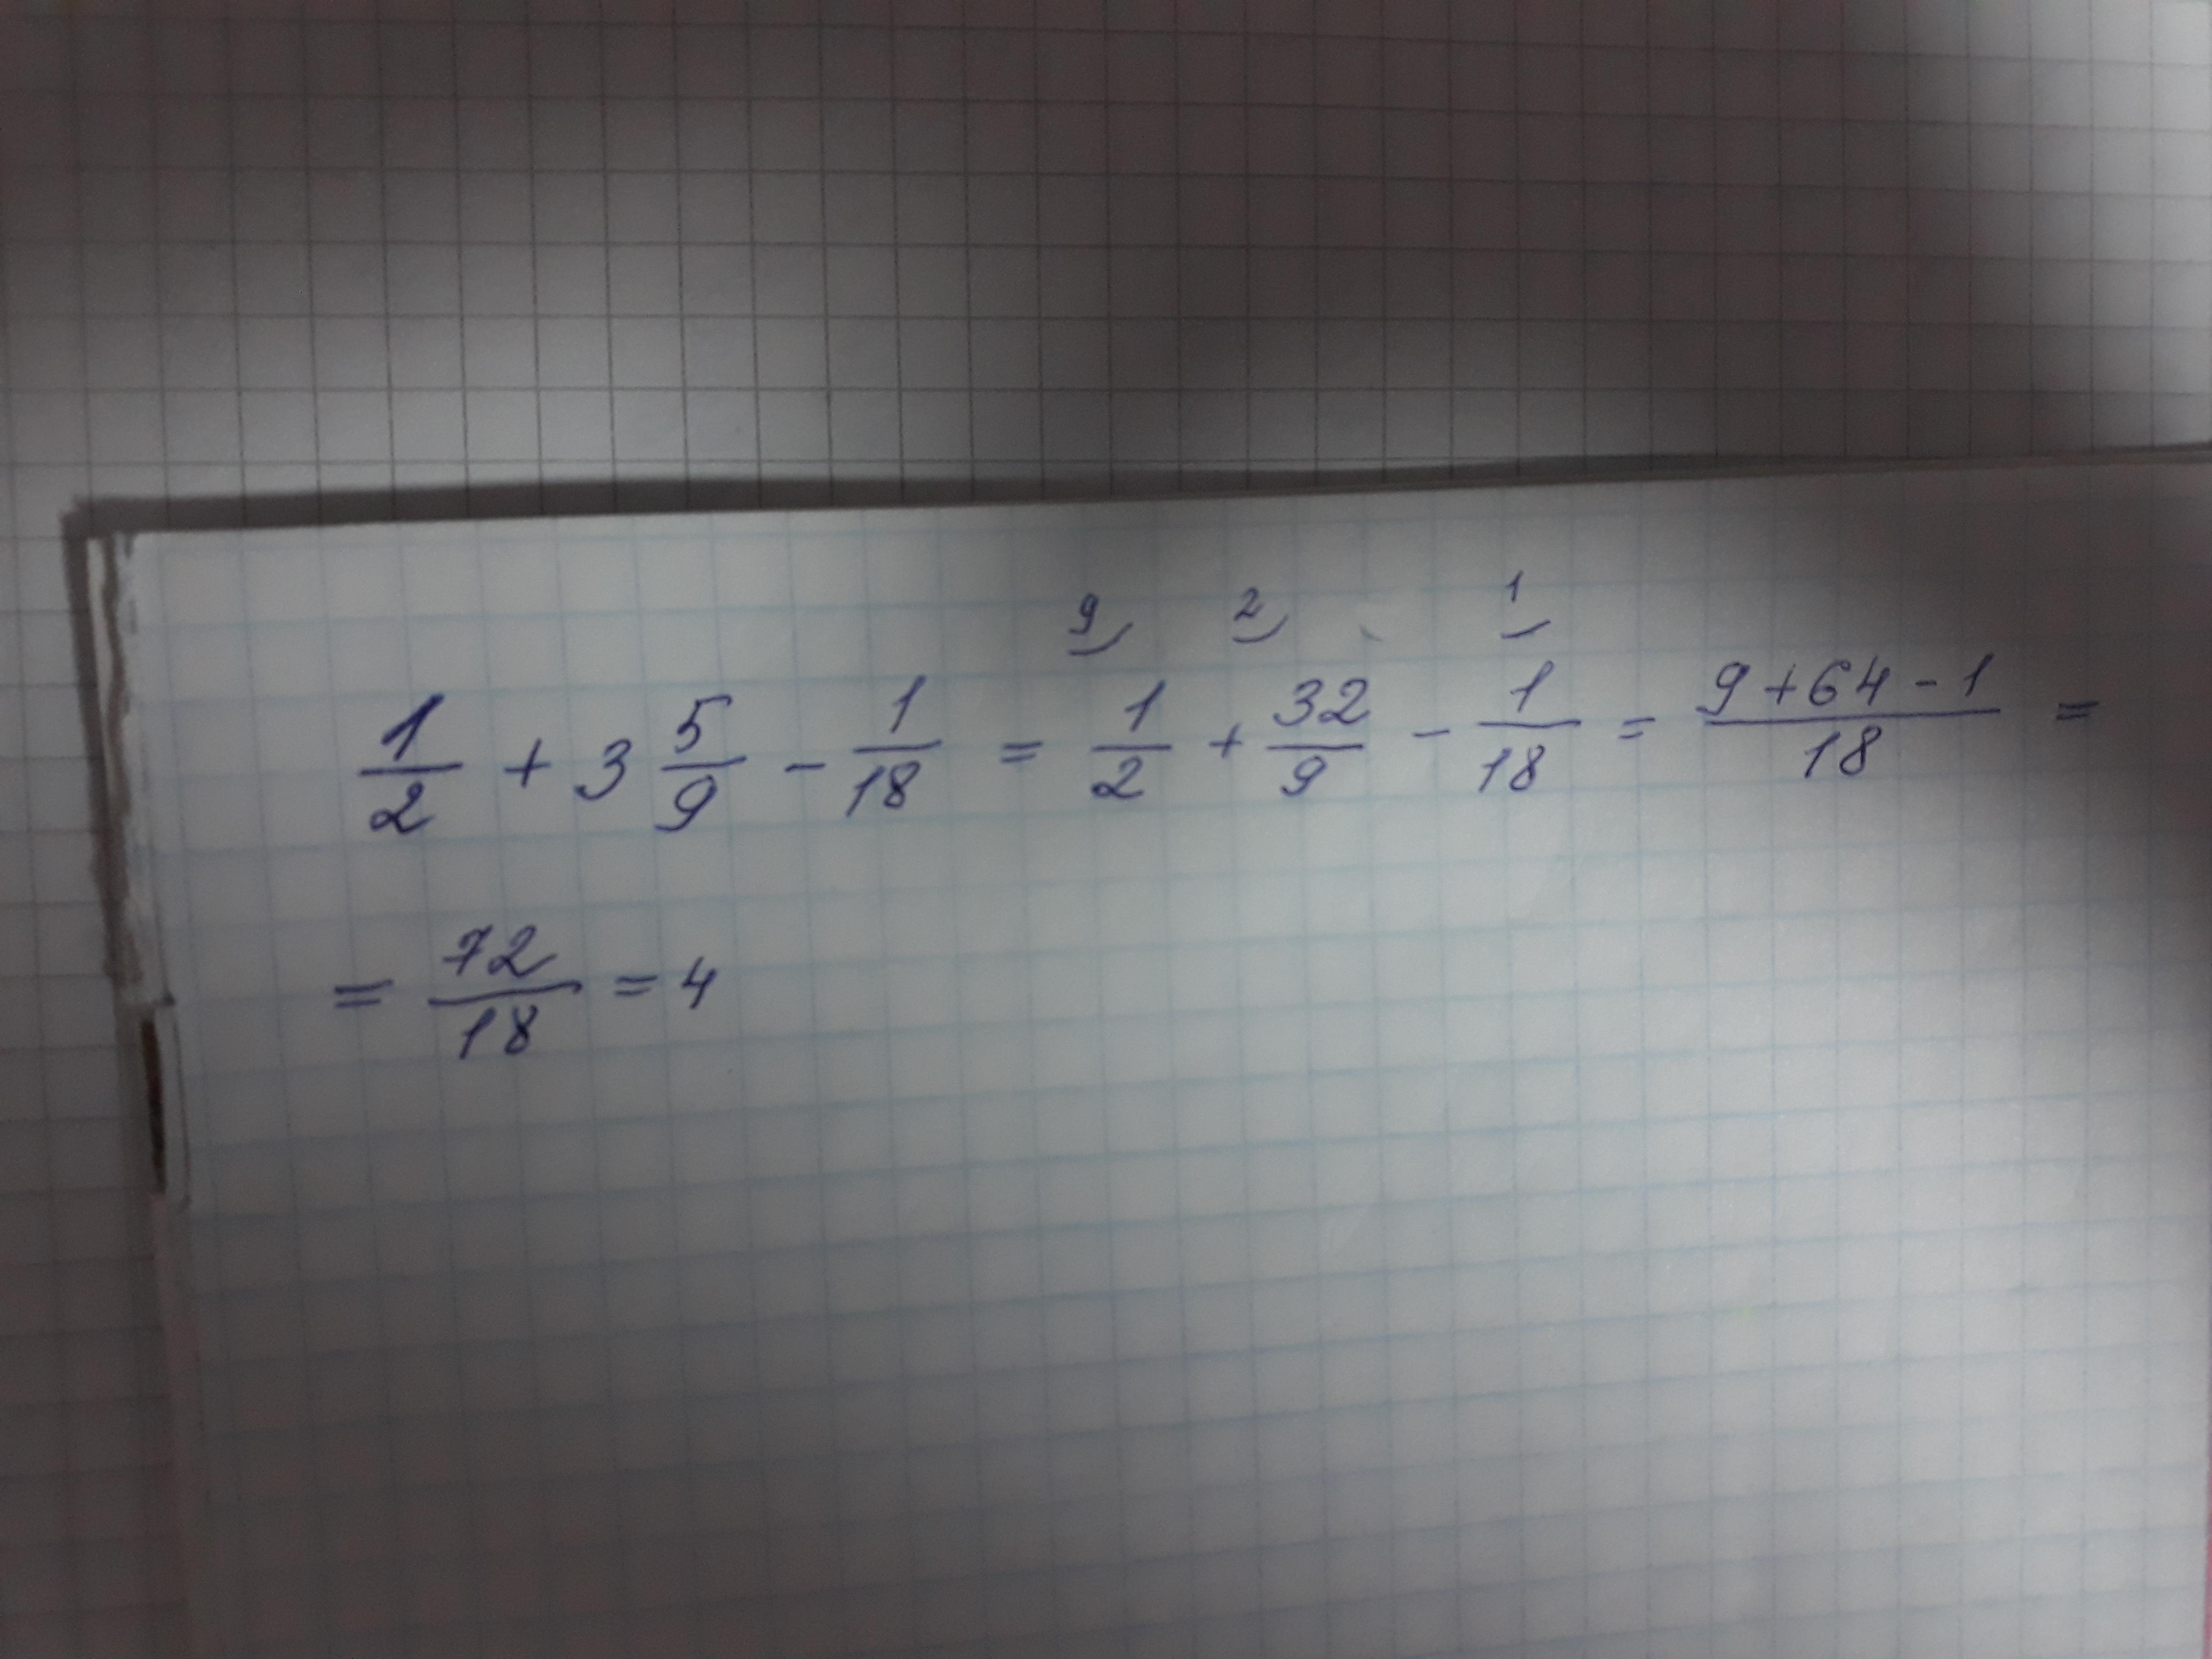 9 2 1
1/2 + 3 5/9 - 1/18 = 1/2 + 32/9 - 1/18 = 9+64-1/18 =
= 72/18 = 4